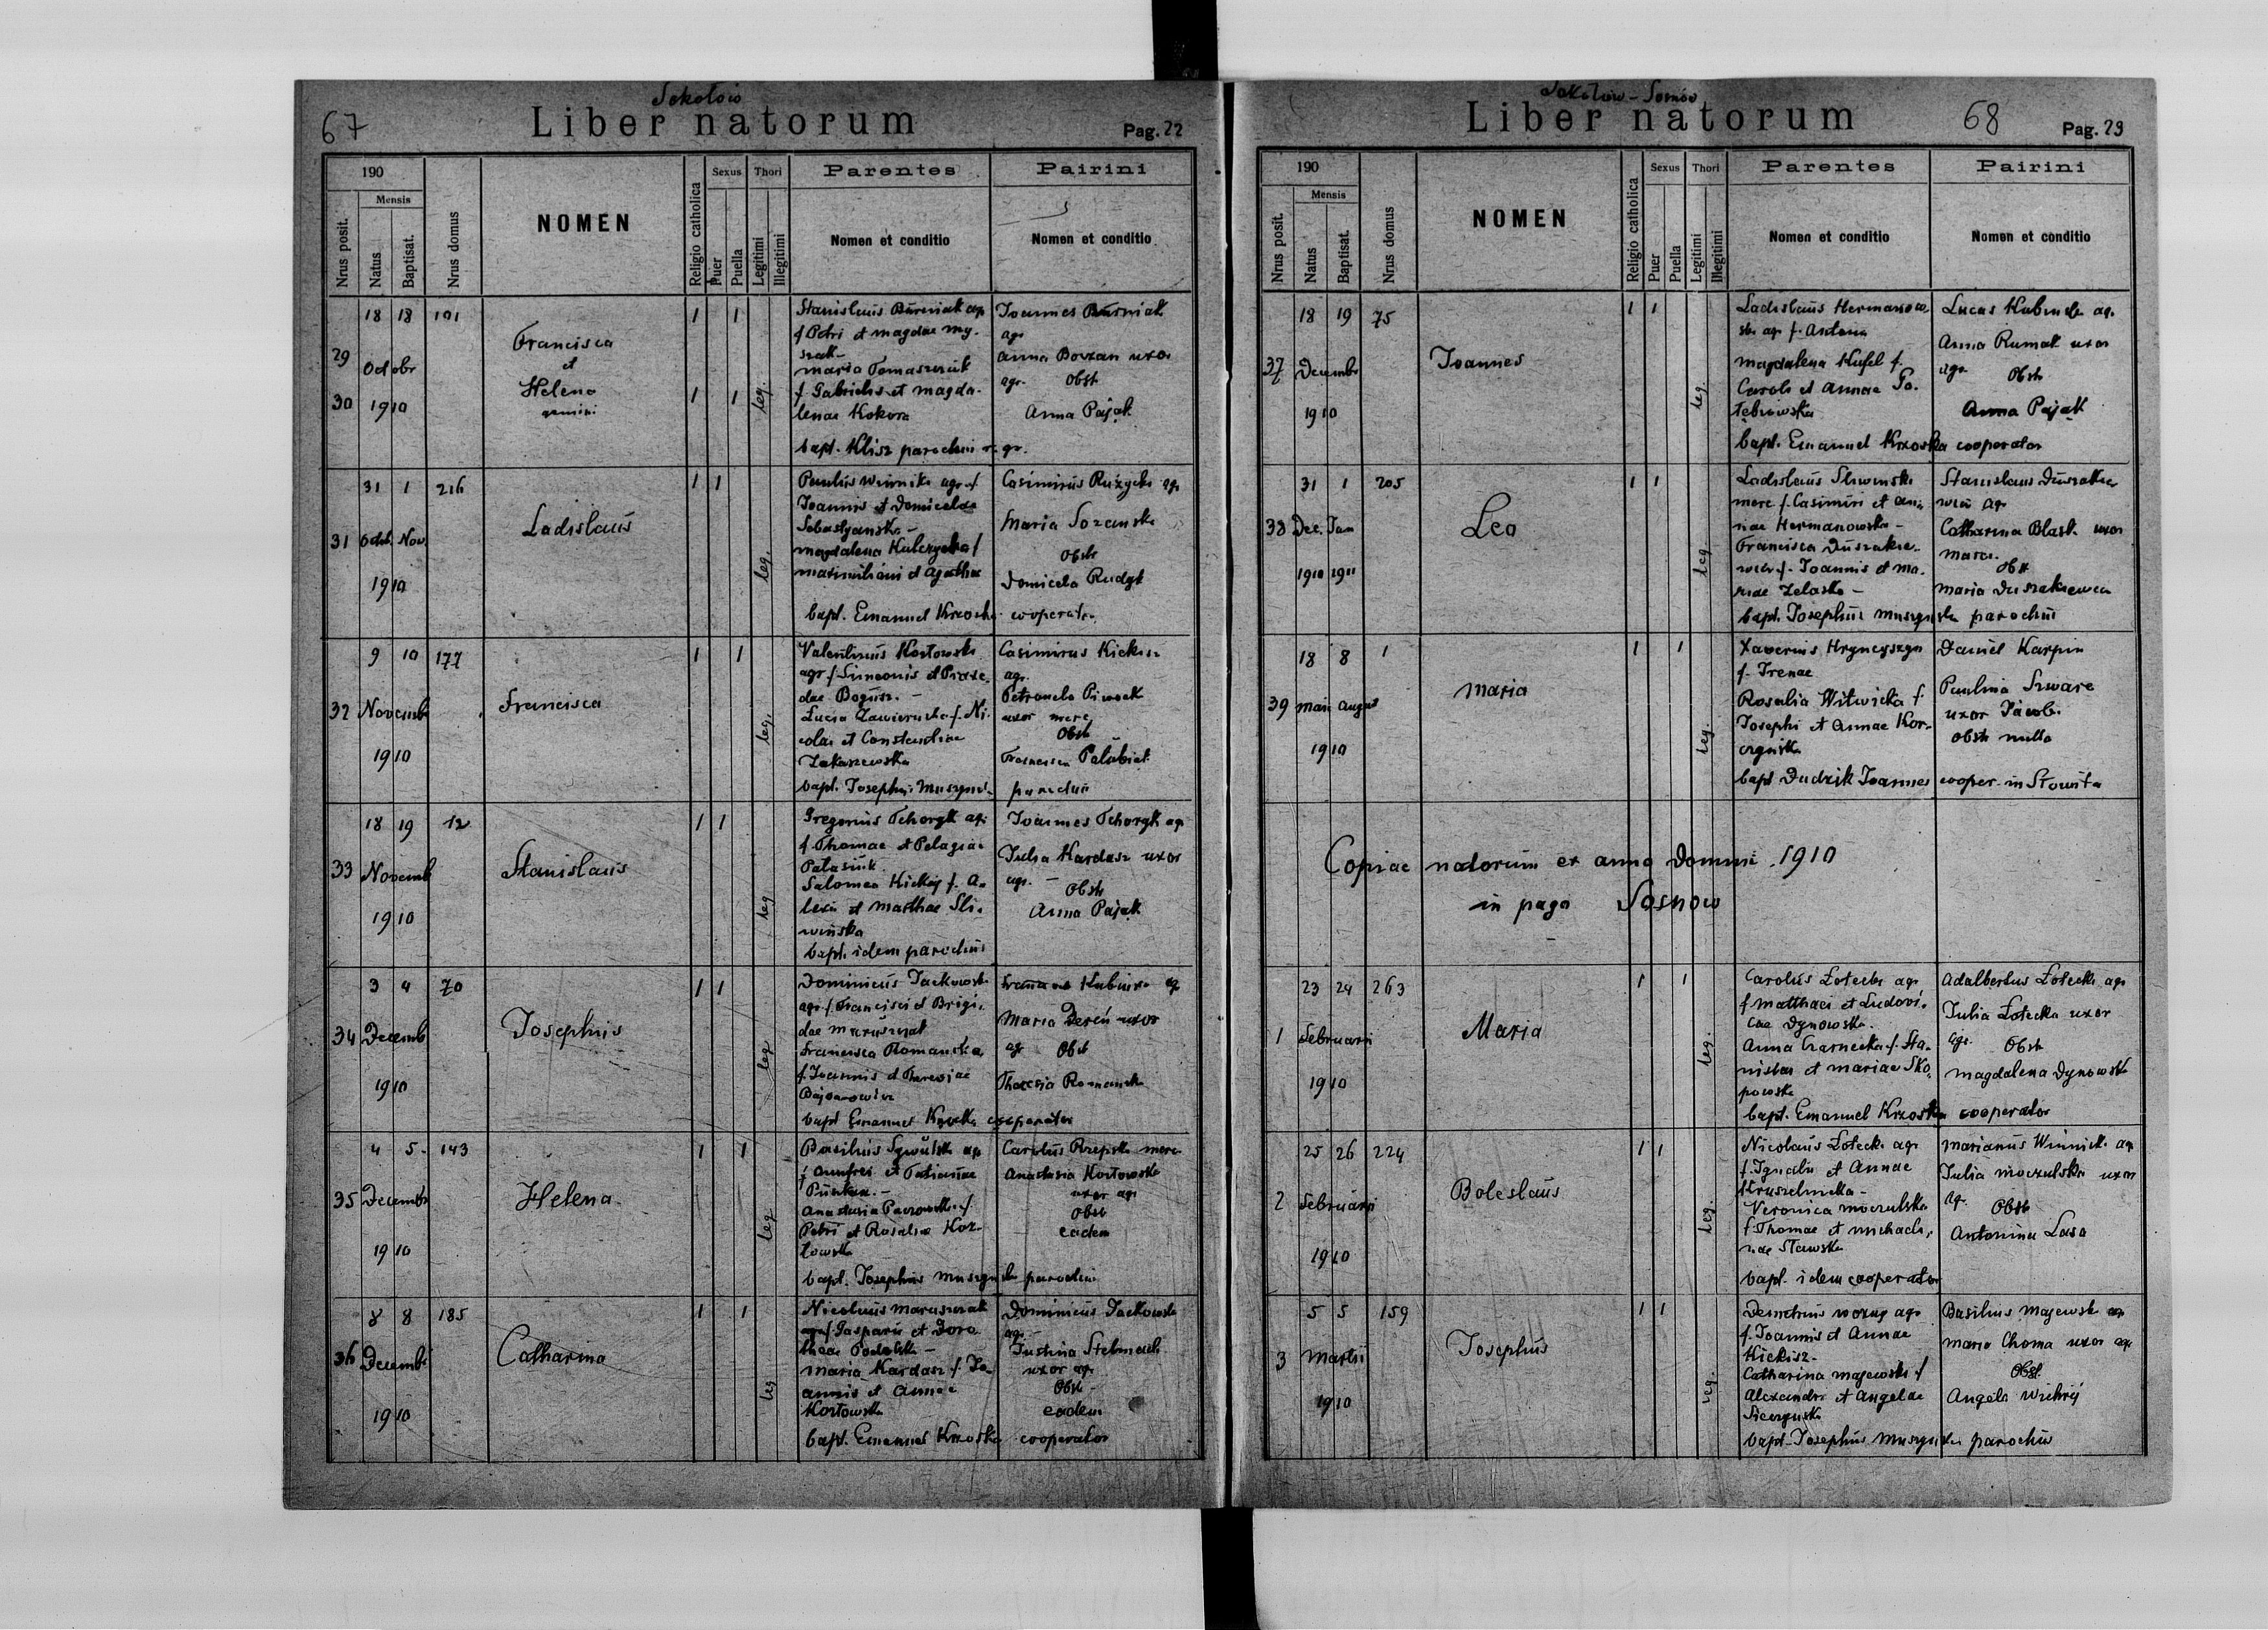 67
Sokołów
Liber natorum
Pag. 22
190
Mensis
Nrus posit.
Natus
Baptisat.
Nrus domus
NOMEN
Religio catholica
Sexus
Puer
Puella
Thori
Legitimi
Illegitimi
Parentes
Nomen et conditio
Pairini
Nomen et conditio
29
30
18 18 101
Octobr
1910
Francisca
et
Helena
gemini
1 1
1 1
leg.
Stanislaus Burniak agr
f Petri et Magdae My-
szak-
Maria Tomaszczuk
f. Gabrielis et Magda-
lenae Kokora
bapt. Klisz parochus r. gr.
Joannes Burniak
agr
Anna Borzan uxor
agr. Obst
Anna Pająk
31
31 1 216
Octob. Nov.
1910
Ladislaus
1 1
leg.
Paulus Winnik agr f.
Joannis et Domicelae
Sebastyanska -
Magdalena Kulczycka f
Maximiliani et Agathae
bapt. Emanuel Krzoska cooperator
Casimirus Rużycki agr
Maria Sozanska
Obstr
Domicela Rudyk
32
9 10 177
Novembr
1910
Francisca
1 1
leg.
Valentinus Kostowski
agr f Simeonis et Praxe-
dae Bogusz. -
Lucia Zawierucha f. Ni-
colai et Constantiae
Zakaszewska
bapt. Josephus Muszyns. parochus
Casimirus Kickisz
agr.
Petronela Piwock
uxor merc.
Obstr
Francisca Palubiak
33
18 19 12
Novemb
1910
Stanislaus
1 1
leg
Gregorius Tchoryk agr
f. Thomae et Pelagiae
Palasiuk
Salomea Hickiej f. A-
lexii et Marthae Sli-
winska
bapt. idem parochus
Joannes Tchoryk agr
Julia Kardasz uxor
agr. -
Obstr
Anna Pająk
34
3 4 70
Decemb
1910
Josephus
1 1
leg
Dominicus Jackowski
agr f Francisci et Brigi-
dae Maruszczak
Francisca Romanska
f. Joannis et Theresiae
Bajanowicz
bapt Emanuel Krzoska cooperator
Kubisz agr
Maria Dereń uxor
agr Obst
Theresia Romanska
35
4 5. 143
Decembr
1910
Helena
1 1
leg
Basilius Sywulski agr
f Onufrei et Tatianae
Anastasia Paczowska f
Petri et Rosaliae Koz-
lowska
bapt. Josephus Muszynski parochus
Carolus Rzepski merc
Anastasia Kostowska
uxor agr
Obst
eadem
36
8 8 185
Decembr
1910
Catharina
1 1
leg
Nicolaus Maruszczak
agr f Gasparis et Doro-
theae Podolska -
Maria Kardasz f. Jo-
annis et Annae
Kostowska
bapt. Emanuel Krzoska cooperator
Dominicus Jackowski
agr -
Justina Stelmach
uxor agr
Obst -
eadem
Sokołów - Sosnów
Liber natorum
68
Pag. 23
190
Mensis
Nrus posit.
Natus
Baptisat.
Nrus domus
NOMEN
Religio catholica
Sexus
Puer
Puella
Thori
Legitimi
Illegitimi
Parentes
Nomen et conditio
Pairini
Nomen et conditio
37
18 19 75
Decembr
1910
Joannes
1 1
leg
Ladislaus Hermanow-
ski agr f. Antonii
Magdalena Kufel f.
Caroli et Annae Go-
lębiowska
bapt. Emanuel Krzoska cooperator
Lucas Kubisch agr.
Anna Rumak uxor
agr. Obst
Anna Pająk
38
31 1 205
Dec. Jan
1910 1911
Leo
1 1
leg
Ladislaus Sliwinski
merc f. Casimiri et An-
nae Hermanowska -
Francisca Duszakie-
wicz f. Joannis et Ma-
riae Zelasko -
bapt. Josephus Muszynski parochus
Stanislaus Duszakie-
wicz agr
Catharina Blast. uxor
marc.
Obst
Maria Duszakiewicz
39
18 8 1
Maii August
1910
Maria
1 1
leg.
Xaverius Hryncyszyn
f. Irenae
Rosalia Witwicka f.
Josephi et Annae Kor-
czynska
bapt Dudzik Joannes cooper. in Słowita
Daniel Karpin
Paulina Szwarc
uxor Jacobi
Obst nulla
Copiae natorum ex anno Domini 1910
in pago Sosnow
1
23 24 263
Februarii
1910
Maria
1 1
leg.
Carolus Łotecki agr
f Matthaei et Ludovi-
cae Dynowska.
Anna Czarnecka f. Sta-
nislai et Mariae Sko-
powska
bapt. Emanuel Krzoska cooperator
Adalbertus Łotecki agr
Julia Łotecka uxor
agr. Obst
Magdalena Dynowska
2
25 26 224
Februarii
1910
Boleslaus
1 1
leg.
Nicolaus Łotecki agr
f. Ignatii et Annae
Kruszelnicka -
Veronica Moczulska
f. Thomae et Michaeli-
nae Stawska
bapt. idem cooperator
Marianus Winnicki agr
Julia Moczulska uxor
agr. Obst
Antonina Lasa
3
5 5 159
Martii
1910
Josephus
1 1
leg.
Demetrius Wozny agr
f. Joannis et Annae
Kickisz -
Catharina Majewska f
Alexandri et Angelae
Sieczynska
bapt. Josephus Muszynski parochus
Basilius Majewski agr
Maria Choma uxor agr
Obst.
Angela Wichrij